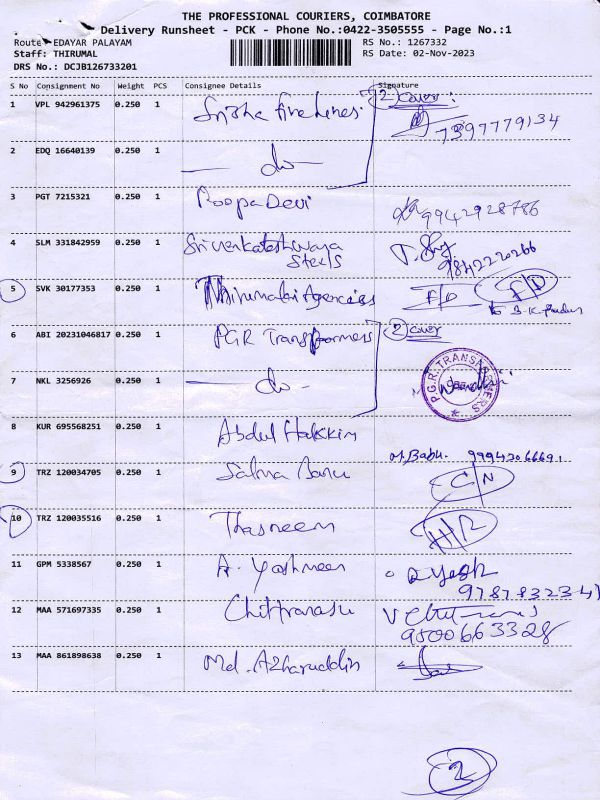 THE PROFESSIONAL COURIERS, COIMBATORE
Delivery Runsheet - PCK - Phone No.:0422-3505555 - Page No.:1
Route: EDAYAR PALAYAM RS No.: 1267332
Staff: THIRUMAL RS Date: 02-Nov-2023
DRS No.: DCJB126733201
S No Consignment No Weight PCS Consignee Details Signature
1 VPL 942961375 0.250 1 Sribha fire lines 2 cover : 7397779134
2 EDQ 16640139 0.250 1 — do —
3 PGT 7215321 0.250 1 Roopa Devi 9942928786
4 SLM 331842959 0.250 1 Sri venkateshwara Steels 9842220266
5 SVK 30177353 0.250 1 Thirumalai Agencies F/D F/D
6 ABI 20231046817 0.250 1 PGR Transformers 2 cover
7 NKL 3256926 0.250 1 — do — P.G.R. TRANSFORMERS
8 KUR 695568251 0.250 1 Abdul Hakkim M. Babu. 9994306669
9 TRZ 120034705 0.250 1 Salma Banu C/N
10 TRZ 120035516 0.250 1 Thasneem
11 GPM 5338567 0.250 1 A. Yashmeen
12 MAA 571697335 0.250 1 Chittrarasu 9500663328
13 MAA 861898638 0.250 1 Md. Azharuddin
2